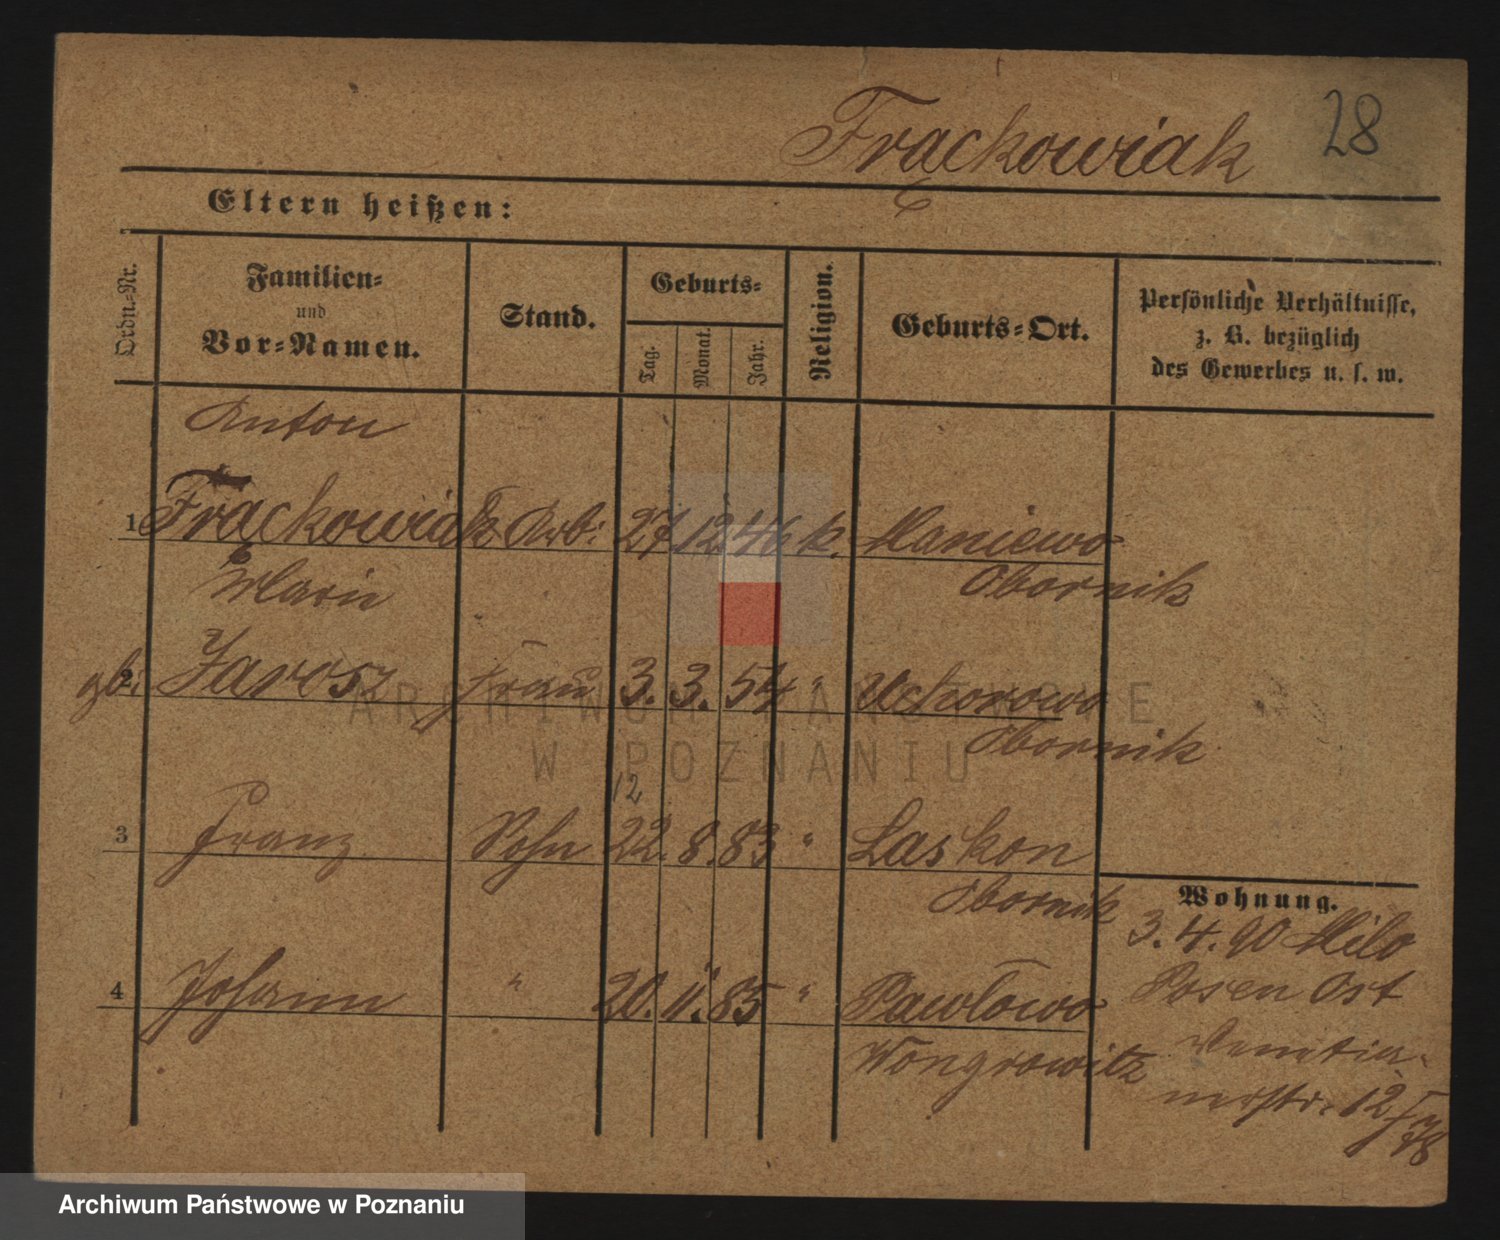 Frąckowiak 28
Eltern heißen:
Ordn.-Nr.
Familien-
und
Vor-Namen.
Stand.
Geburts-
Tag.
Monat.
Jahr.
Religion.
Geburts-Ort.
Persönliche Verhältnisse,
z. B. bezüglich
des Gewerbes u. s. w.
Anton
1 Frąckowiak Arb: 27. 12. 46 k. Maniewo
Obornik
Marie
gb: 2 Jarosz Frau 3. 3. 54 " Uchorowo
Obornik
12
3 Franz Sohn 22. 8. 83 " Laskon
Obornik
4 Johann " 20. 11. 85 " Pawłowo
Wongrowitz
Wohnung.
3. 4. 90 Milo
Posen Ost
Venetia-
nerstr. 12
78
ARCHIWUM PAŃSTWOWE
W POZNANIU
Archiwum Państwowe w Poznaniu